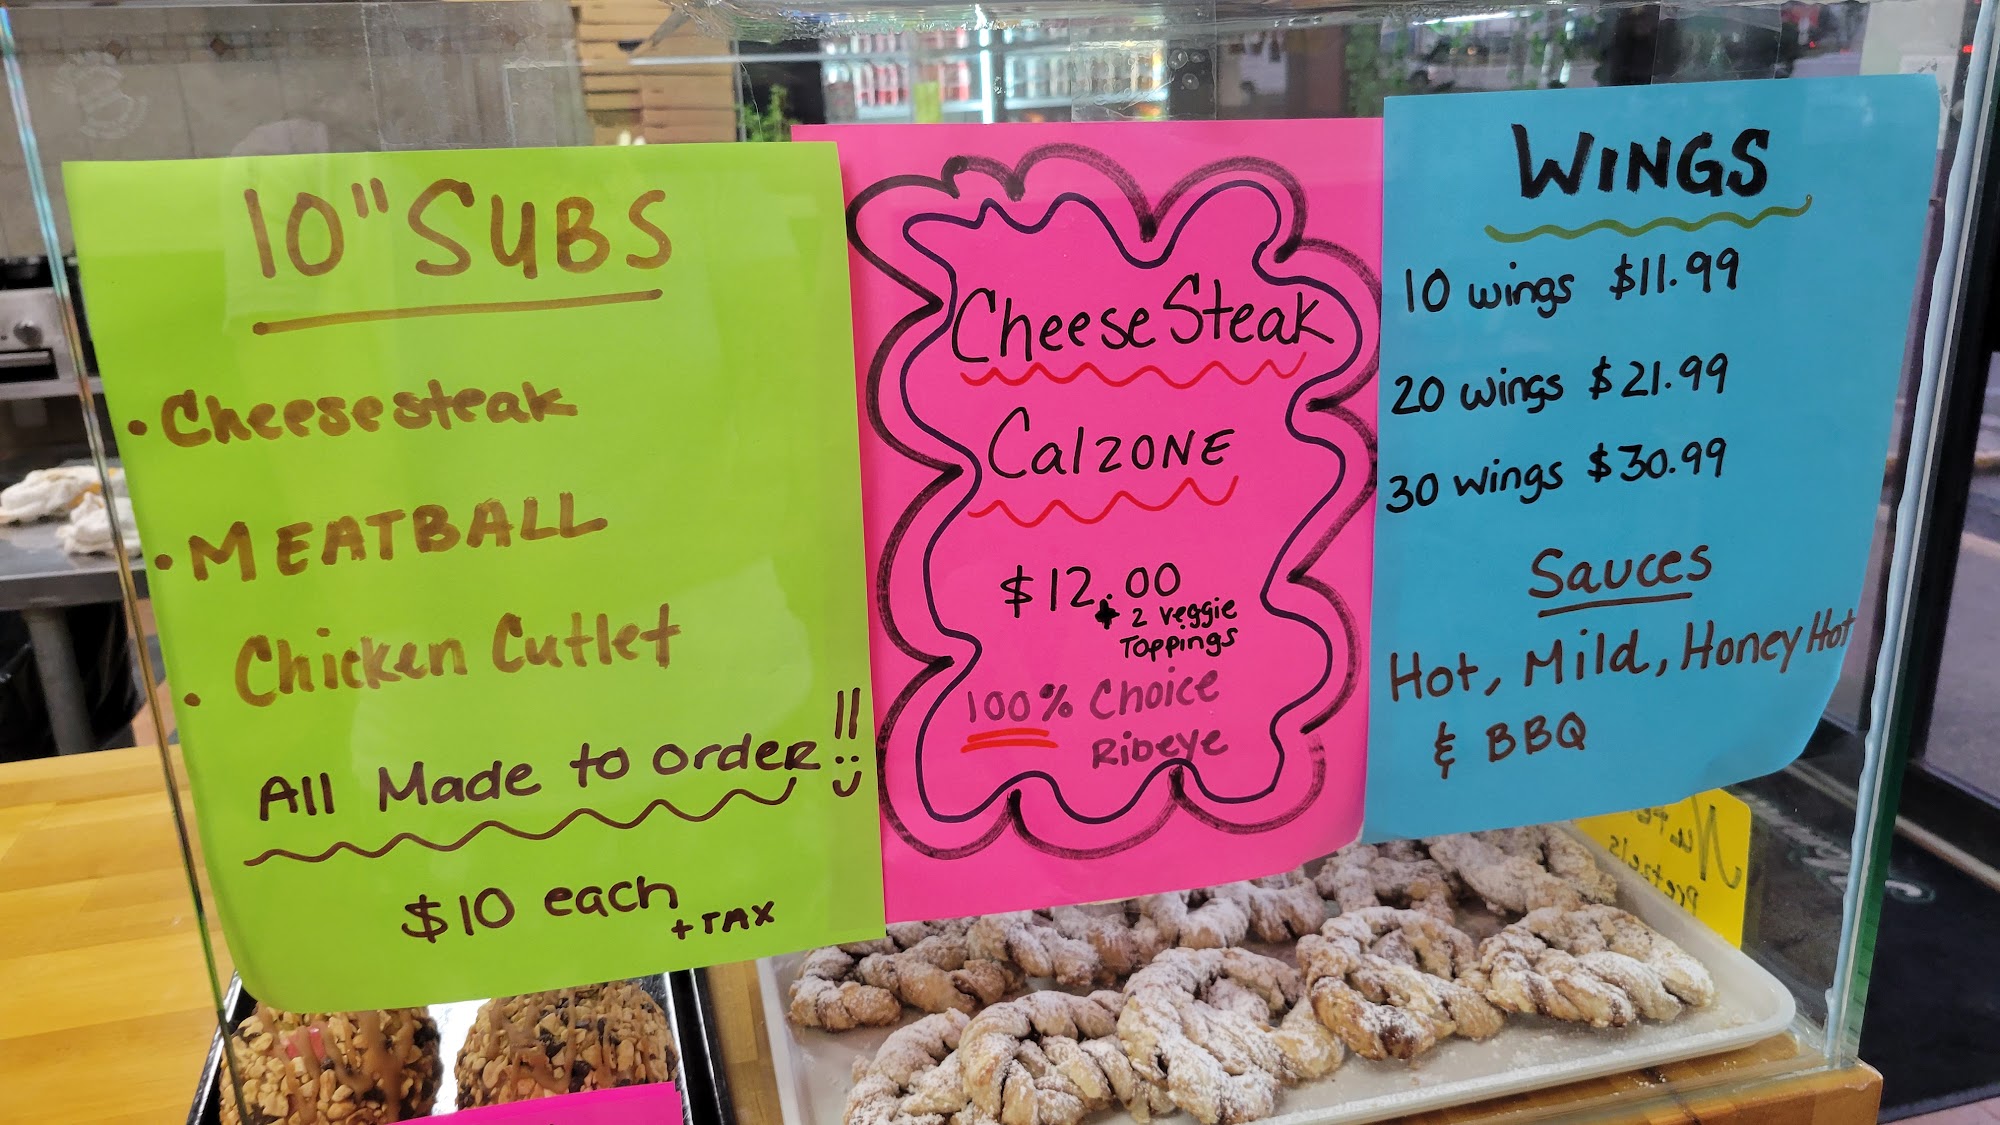 10" SUBS
• Cheesesteak
• MEATBALL
• Chicken Cutlet
All Made to order!!
$10 each
+ TAX
Cheese Steak
CalZONE
$12.00
+ 2 veggie
Toppings
100% Choice
Ribeye
WINGS
10 wings $11.99
20 wings $21.99
30 wings $30.99
Sauces
Hot, Mild, Honey Hot
& BBQ
Pretzels